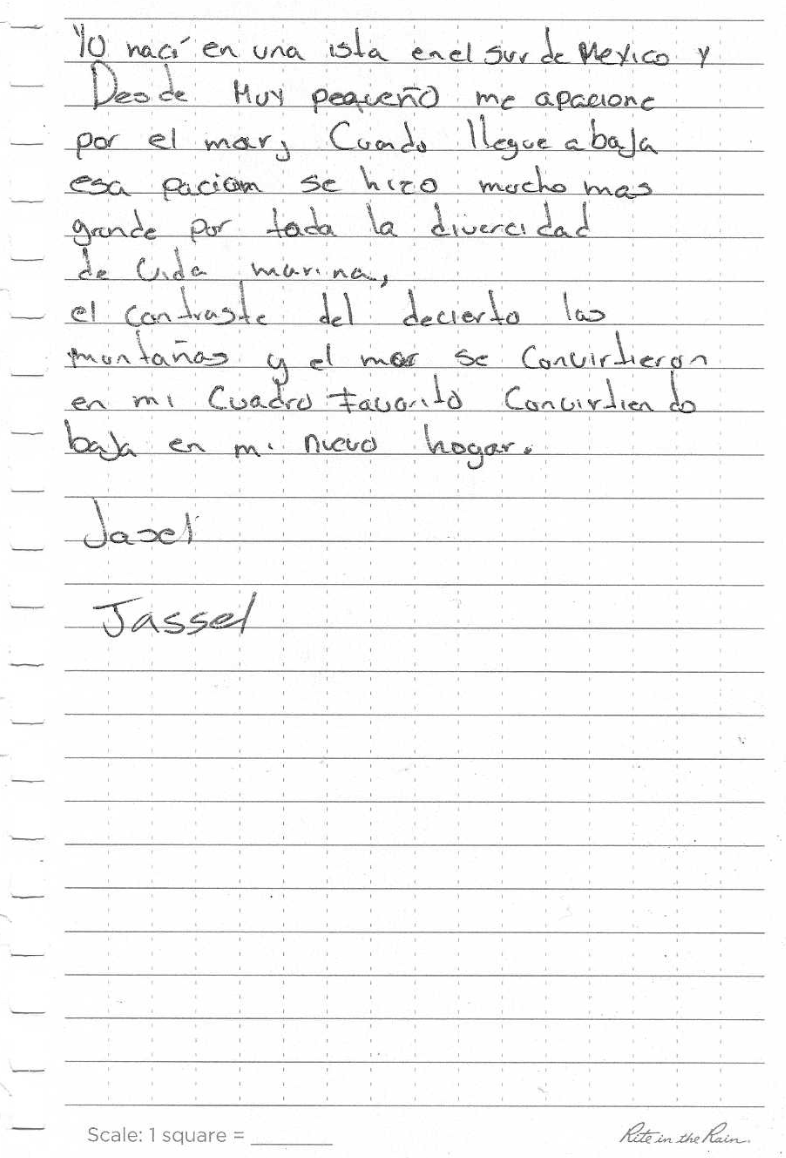 Yo nací en una isla en el sur de Mexico y
Desde Muy pequeño me apacione
por el mar, Cuando llegue a baja
esa pacion se hizo mucho mas
grande por toda la divercidad
de vida marina,
el contraste del decierto las
montañas y el mar se Convirtieron
en mi Cuadro favorito Convirtiendo
baja en mi nuevo hogar.
Jasel
Jassel
Scale: 1 square = ________
Rite in the Rain.